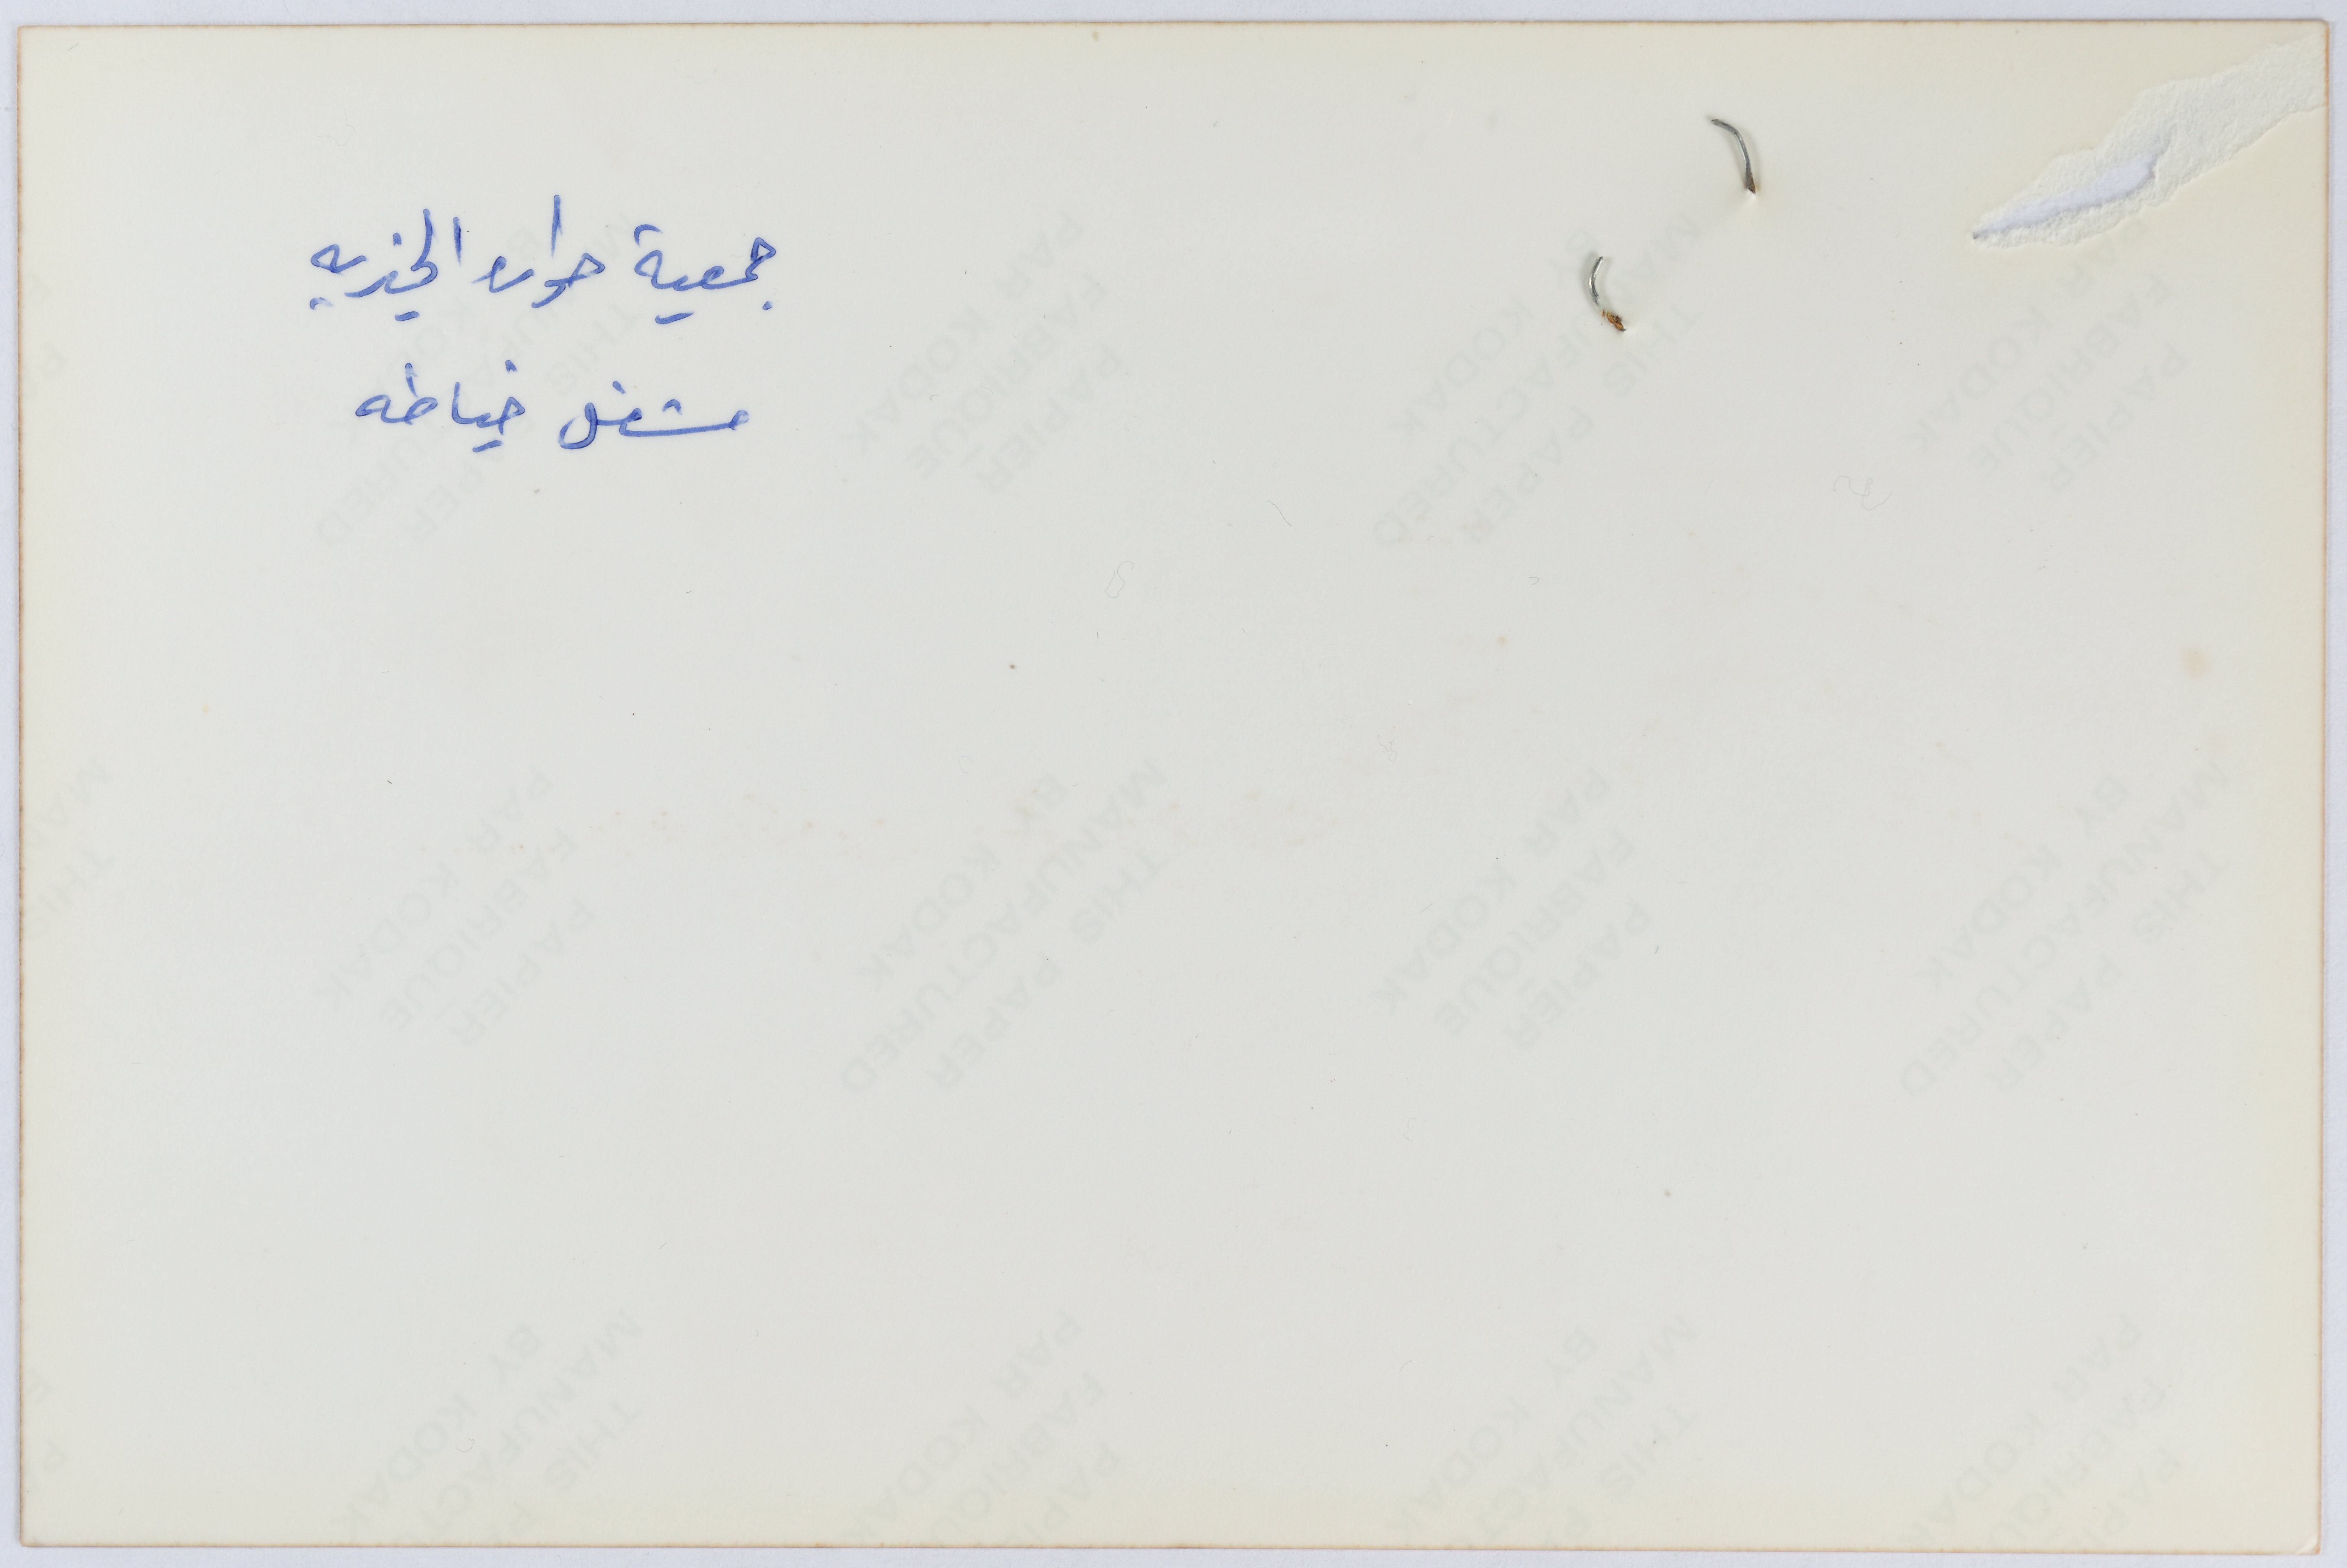 جمعية حواره الخيريه
مشغل خياطه
THIS PAPER
MANUFACTURED
BY KODAK
PAPIER
FABRIQUE
PAR KODAK